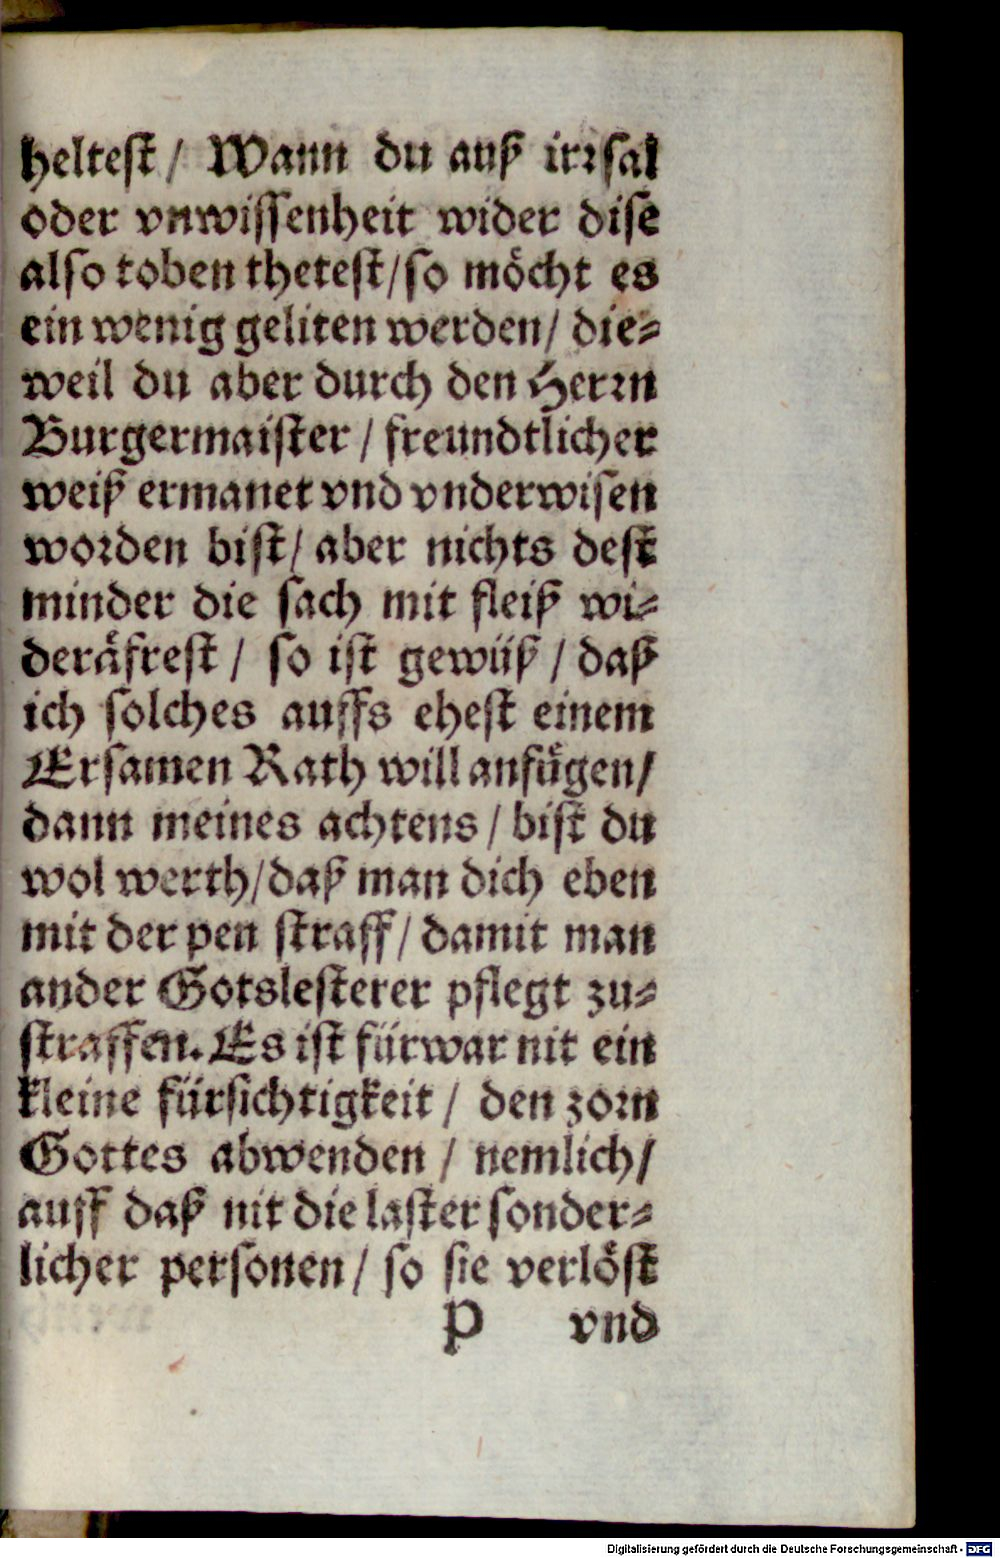 heltest / Wann du auß irrsal
oder vnwissenheit wider dise
also toben thetest/so möcht es
ein wenig geliten werden/ die-
weil du aber durch den Herrn
Burgermaister / freundtlicher
weiß ermanet vnd vnderwisen
worden bist/ aber nichts dest
minder die sach mit fleiß wi-
deräfrest / so ist gewüß / daß
ich solches auffs ehest einem
Ersamen Rath will anfügen/
dann meines achtens / bist du
wol werth/daß man dich eben
mit der pen straff/ damit man
ander Gotslesterer pflegt zu-
straffen. Es ist fürwar nit ein
kleine fürsichtigkeit / den zorn
Gottes abwenden / nemlich/
auff daß nit die laster sonder-
licher personen / so sie verlöst
P vnd
Digitalisierung gefördert durch die Deutsche Forschungsgemeinschaft - DFG